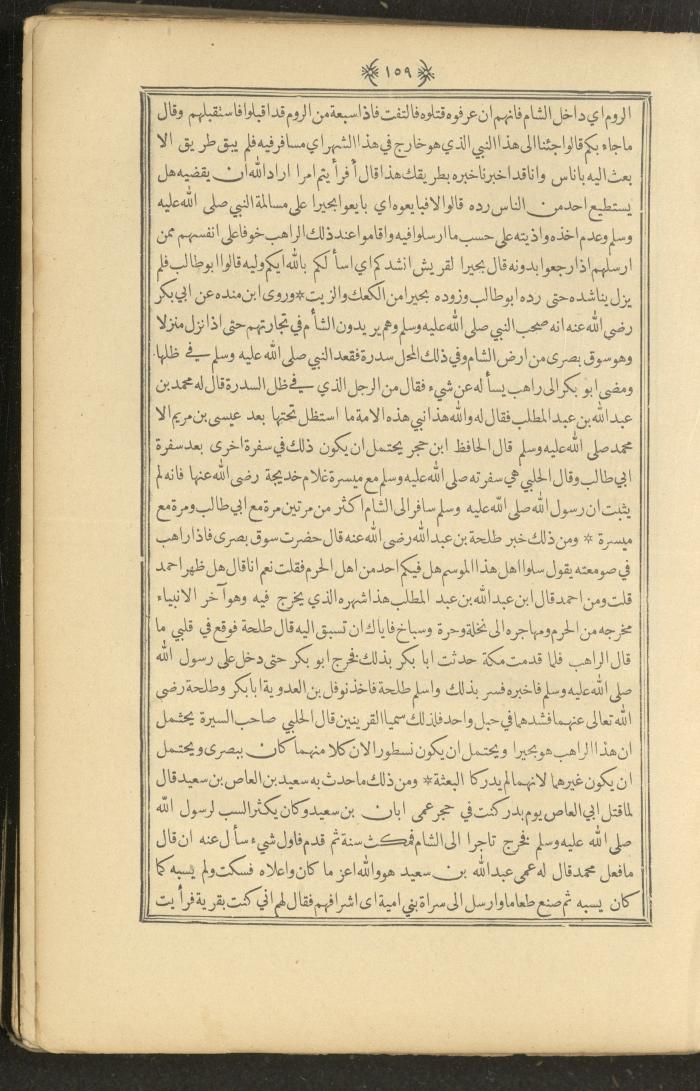 ١٥٩
الروم اي داخل الشام فانهم ان عرفوه قتلوه فالتفت فاذا سبعة من الروم قد اقبلوا فاستقبلهم وقال
ما جاء بكم قالوا جئنا الى هذا النبي الذي هو خارج في هذا الشهر اي مسافر فيه فلم يبق طريق الا
بعث اليه باناس وانا قد اخبرنا خبره بطريقك هذا قال أفرأيتم امرا اراد الله ان يقضيه هل
يستطيع احد من الناس رده قالوا لا فبايعوه اي بايعوا بحيرا على مسالمة النبي صلى الله عليه
وسلم وعدم اخذه واذيته على حسب ما ارسلوا فيه واقاموا عند ذلك الراهب خوفا على انفسهم ممن
ارسلهم اذا رجعوا بدونه قال بحيرا لقريش انشدكم اي اسألكم بالله ايكم وليه قالوا ابو طالب فلم
يزل يناشده حتى رده ابو طالب وزوده بحيرا من الكعك والزيت * وروى ابن منده عن ابي بكر
رضي الله عنه انه صحب النبي صلى الله عليه وسلم وهم يريدون الشأم في تجارتهم حتى اذا نزل منزلا
وهو سوق بصرى من ارض الشام وفي ذلك المحل سدرة فقعد النبي صلى الله عليه وسلم في ظلها
ومضى ابو بكر الى راهب يسأله عن شيء فقال من الرجل الذي في ظل السدرة قال له محمد بن
عبد الله بن عبد المطلب فقال له والله هذا نبي هذه الامة ما استظل تحتها بعد عيسى بن مريم الا
محمد صلى الله عليه وسلم قال الحافظ ابن حجر يحتمل ان يكون ذلك في سفرة اخرى بعد سفرة
ابي طالب وقال الحلبي هي سفرته صلى الله عليه وسلم مع ميسرة غلام خديجة رضى الله عنها فانه لم
يثبت ان رسول الله صلى الله عليه وسلم سافر الى الشام اكثر من مرتين مرة مع ابي طالب ومرة مع
ميسرة * ومن ذلك خبر طلحة بن عبد الله رضى الله عنه قال حضرت سوق بصرى فاذا راهب
في صومعته يقول سلوا اهل هذا الموسم هل فيكم احد من اهل الحرم فقلت نعم انا قال هل ظهر احمد
قلت ومن احمد قال ابن عبد الله بن عبد المطلب هذا شهره الذي يخرج فيه وهو آخر الانبياء
مخرجه من الحرم ومهاجره الى نخلة وحرة وسباخ فاياك ان تسبق اليه قال طلحة فوقع في قلبي ما
قال الراهب فلما قدمت مكة حدثت ابا بكر بذلك فخرج ابو بكر حتى دخل على رسول الله
صلى الله عليه وسلم فاخبره فسر بذلك واسلم طلحة فاخذ نوفل بن العدوية ابا بكر وطلحة رضى
الله تعالى عنهما فشدهما في حبل واحد فلذلك سميا القرينين قال الحلبي صاحب السيرة يحتمل
ان هذا الراهب هو بحيرا ويحتمل ان يكون نسطورا لان كلا منهما كان ببصرى ويحتمل
ان يكون غيرهما لانهما لم يدركا البعثة * ومن ذلك ما حدث به سعيد بن العاص بن سعيد قال
لما قتل ابي العاص يوم بدر كنت في حجر عمى ابان بن سعيد وكان يكثر السب لرسول الله
صلى الله عليه وسلم فخرج تاجرا الى الشام فمكث سنة ثم قدم فاول شيء سأل عنه ان قال
ما فعل محمد قال له عمى عبد الله بن سعيد هو والله اعز ما كان واعلاه فسكت ولم يسبه كما
كان يسبه ثم صنع طعاما وارسل الى سراة بني امية اى اشرافهم فقال لهم اني كنت بقرية فرأيت